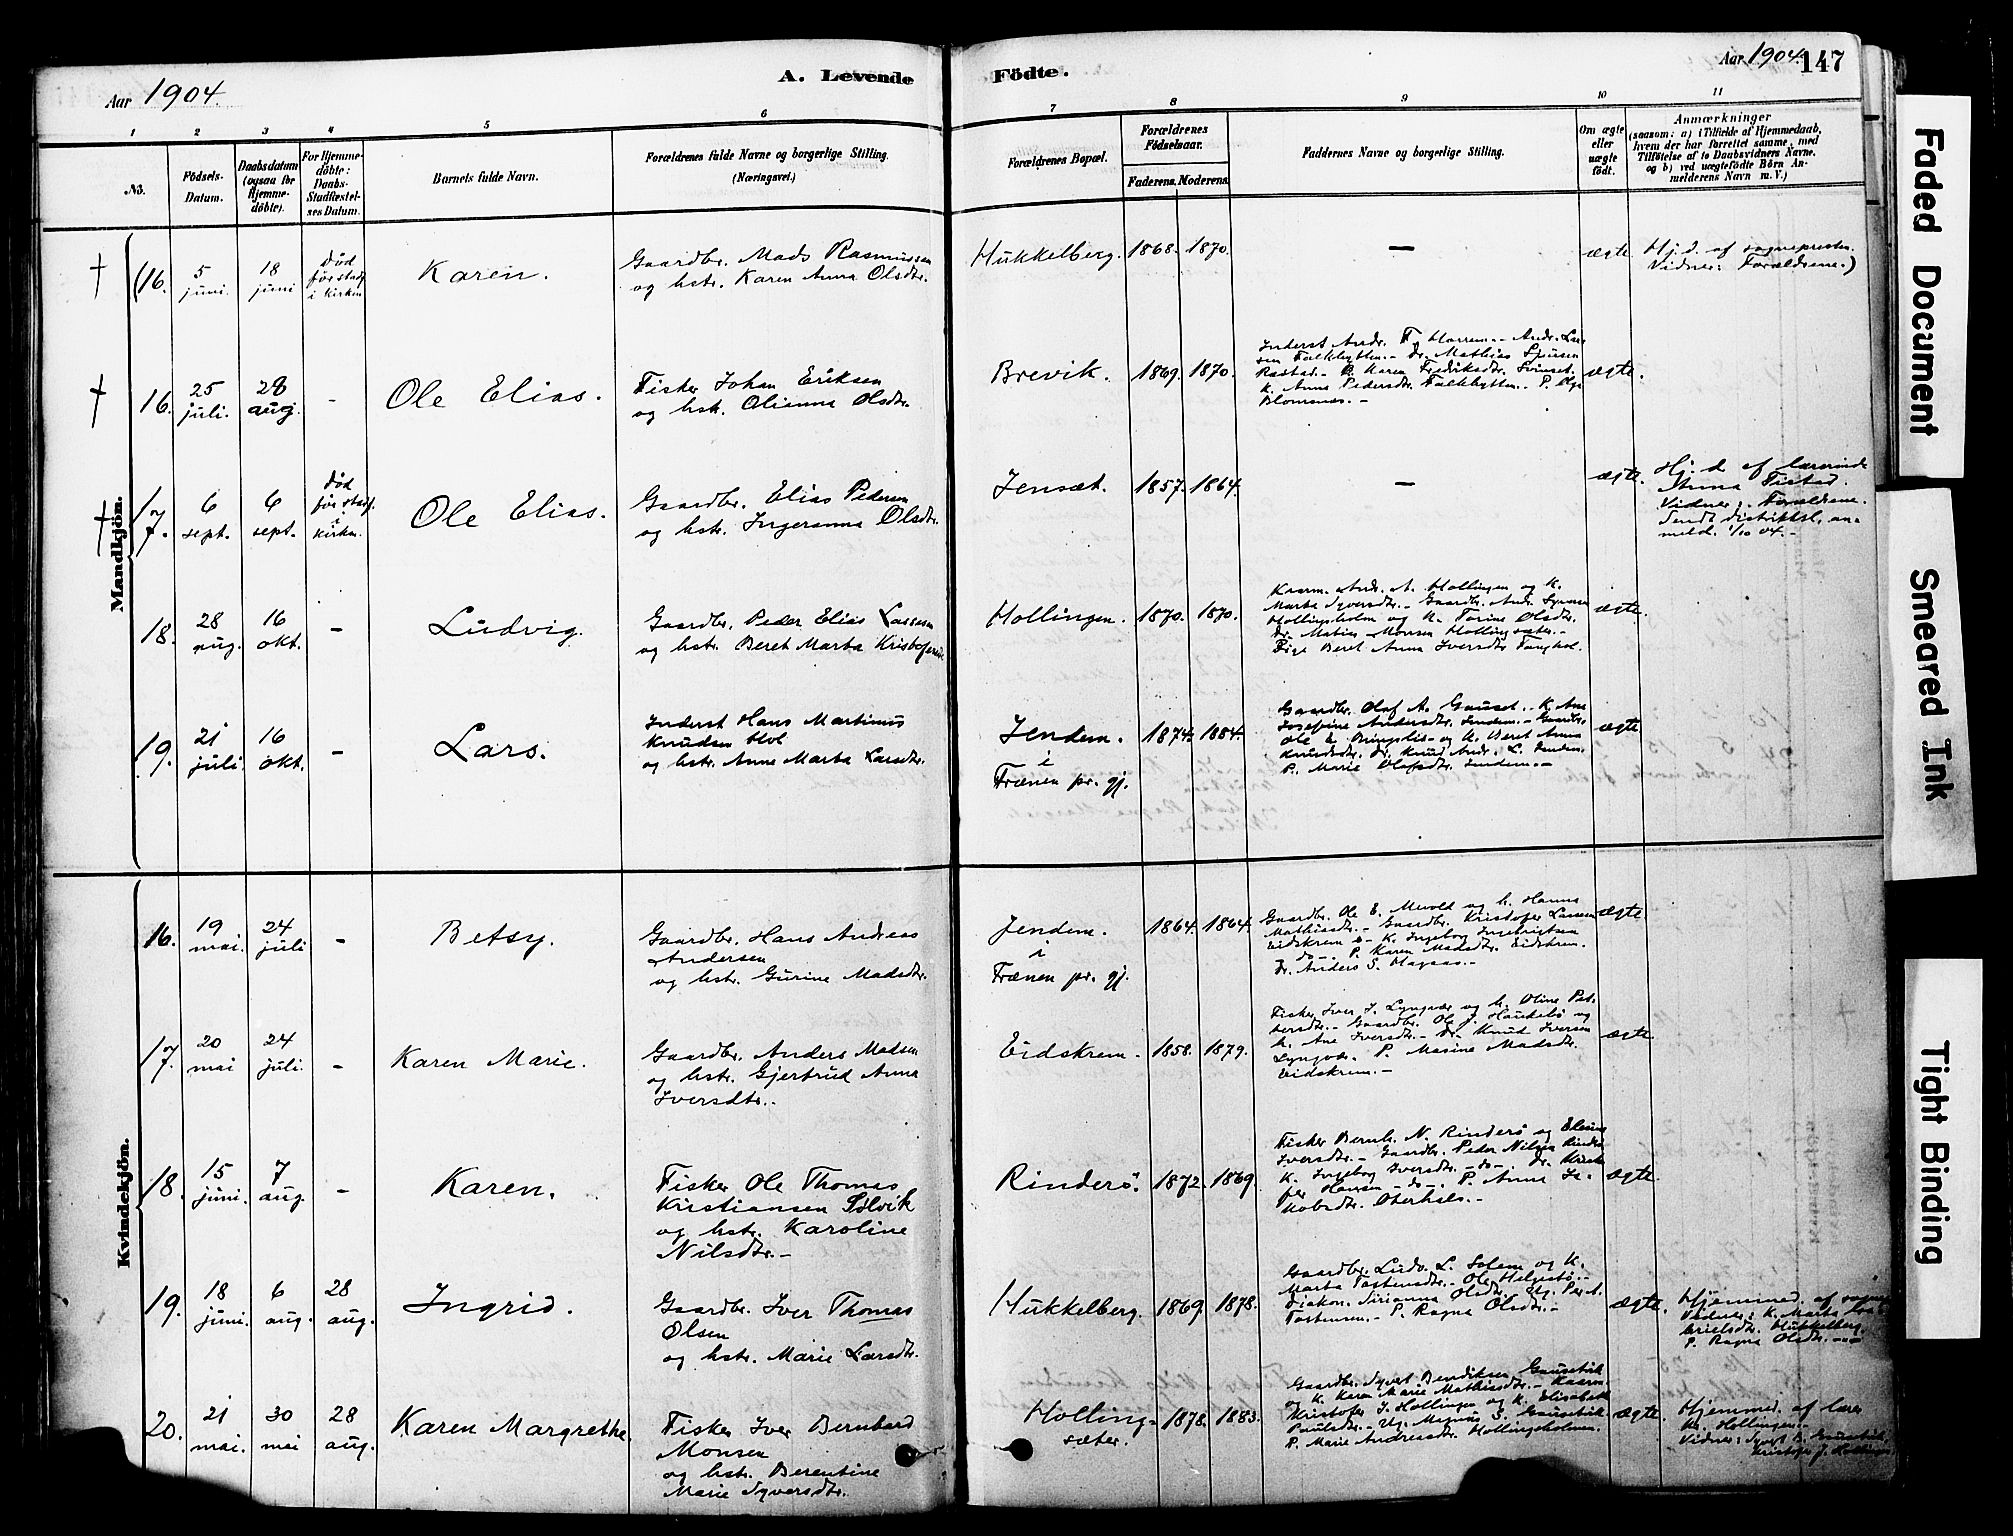 Aar 1904.
A. Levende
Födte.
Aar 1904.
147
1 2 3 4 5 6 7 8 9 10 11
No.
Födsels-
Datum.
Daabsdatum
(ogsaa for
Hjemme-
döbte).
For Hjemme-
döbte:
Daabs-
Stadfæstel-
ses Datum.
Barnets fulde Navn.
Forældrenes fulde Navne og borgerlige Stilling.
(Næringsvei.)
Forældrenes Bopæl.
Forældrenes
Födselsaar.
Faderens. Moderens.
Faddernes Navne og borgerlige Stilling.
Om ægte
eller
uægte
født.
Anmærkninger
(saasom: a) i Tilfælde af Hjemmedaab,
hvem der har forrettet samme, med
Tilføielse af to Daabsvidners Navne,
og b) ved uægtefödte Börn An-
melderens Navn m. V.)
Mandkjön.
(16. 5 juni. 18 juni død før stadf. i kirken
Karen.
Gaardbr. Mads Rasmussen
og hstr. Karen Anna Olsdtr.
Hukkelberg. 1868. 1870. — ægte
Hj.d. af sognepresten.
Vidner: Forældrene.)
16. 25 juli. 28 aug. -
Ole Elias.
Fisker Johan Eriksen
og hstr. Olianna Olsdtr.
Brevik. 1869. 1870.
Inderst Andr. T. Horrem - Andr. Lar-
sen Falkhytten - Mathias
Rastad - Karen Fredriksdtr.
K. Anna Pedersdtr. Falkhytten. P. Olga
Blomsnes. -
ægte.
17. 6 sept. 6 sept. død før stadf. i kirken.
Ole Elias.
Gaardbr. Elias Pedersen
og hstr. Ingeranna Olsdtr.
Jensæt. 1857. 1864. — ægte.
Hj.d. af lærerinde
Anna
Vidner: Forældrene.
Sendt distriktsl. an-
meld. 1/10 04. -
18. 28 aug. 16 okt. -
Ludvig.
Gaardbr. Peder Elias Lassesen
og hstr. Beret Marta
Hollingen. 1870. 1870.
Kaarm. Andr. A. Hollingen og K.
Marta Syversdtr. - Gaardbr. Andr.
Hollingsholm og K. Torine Olsdtr.
Dr. Matias Monsen Hollingsæter. -
Pige Beret Anna Iversdtr.
ægte.
19. 21 juli. 16 okt. -
Lars.
Inderst Hans Martinus
Knudsen Hol
og hstr. Anne Marta Larsdtr.
Jendem. i Frænen pr. gj. 1874. 1884.
Gaardbr. Olaf A. Gauset. K. Ane
Josefine Andersdtr. Jendem. - Gaardbr.
Ole E. Bringsli - og K. Beret Anna
Knudsdtr. Dr. Knud Andr. L. Jendem.
P. Marie Olafsdtr. Jendem. -
ægte
Kvindekjön.
16. 19 mai. 24 juli -
Betsy.
Gaardbr. Hans Andreas
Andersen
og hstr. Gurine Madsdtr.
Jendem. i Frænen pr. gj. 1864. 1864.
Gaardbr. Ole E. Mevold og h. Hanna
Mathiasdtr. - Gaardbr. Kristofer Lassesen
Eidskrem - K. Ingeborg Ingebrigtsen
- do -. P. Karen Madsdtr. Eidskrem.
Dr. Anders S. Hagaas. -
ægte
17. 20 mai 24 juli. -
Karen Marie.
Gaardbr. Anders Madsen
og hstr. Gjertrud Anna
Iversdtr.
Eidskrem. 1858. 1879.
Fisker Iver J. Lyngvær og h. Oline Pet-
tersdtr. - Gaardbr. Ole J. Haukebø og
h. Ane Iversdtr. - Dr. Knud Iversen
Lyngvær. P. Masine Madsdtr.
Eidskrem. -
ægte.
18. 15 juni. 7 aug. -
Karen.
Fisker Ole Thomas
Kristiansen Sølvik
og hstr. Karoline
Nilsdtr. -
Rinderö. 1872. 1869.
Fisker Bernh. N. Rinderö og
Iversdtr. - Gaardbr. Peder Nilsen Rinderö
K. Ingeborg Iversdtr. - do -. Dr. Kristo-
fer Hansen - do -. P. Anna
ægte.
19. 18 juni. 6 aug. 28 aug.
Ingrid.
Gaardbr. Iver Thomas
Olsen
og hstr. Marie Larsdtr.
Hukkelberg. 1869. 1878.
Gaardbr. Ludv. L. Solem og K.
Marta Tostensdtr. - Ole Helgestö. -
Diakon. Sirianna Olsdtr. Ug. Per A.
Tostensen. - P. Ragna Olsdtr. -
ægte.
Hjemmed. af sogn.
Vidner: K. Marta
Hukkelberg.
P. Ragna Olsdtr. -
20. 21 mai. 30 mai 28 aug.
Karen Margrethe
Fisker Iver Bernhard
Monsen
og hstr. Berentine
Marie Syversdtr.
Holling-
sæter. 1878. 1883.
Gaardbr. Syvert Bendiksen Gausetvik
og K. Karen Marie Mathiasdtr. - Kaarm.
Kristofer J. Hollingen og K. Elisabeth
Paulsdtr. - Ug. Magnus S. Gausetvik.
P. Marie Andreasdtr. Hollingsholmen.
ægte.
Hjemmed. af lærer
Hollingen. -
Vidner: Syvert B. Gausetvik
Kristofer J. Hollingen
Faded Document
Smeared Ink
Tight Binding